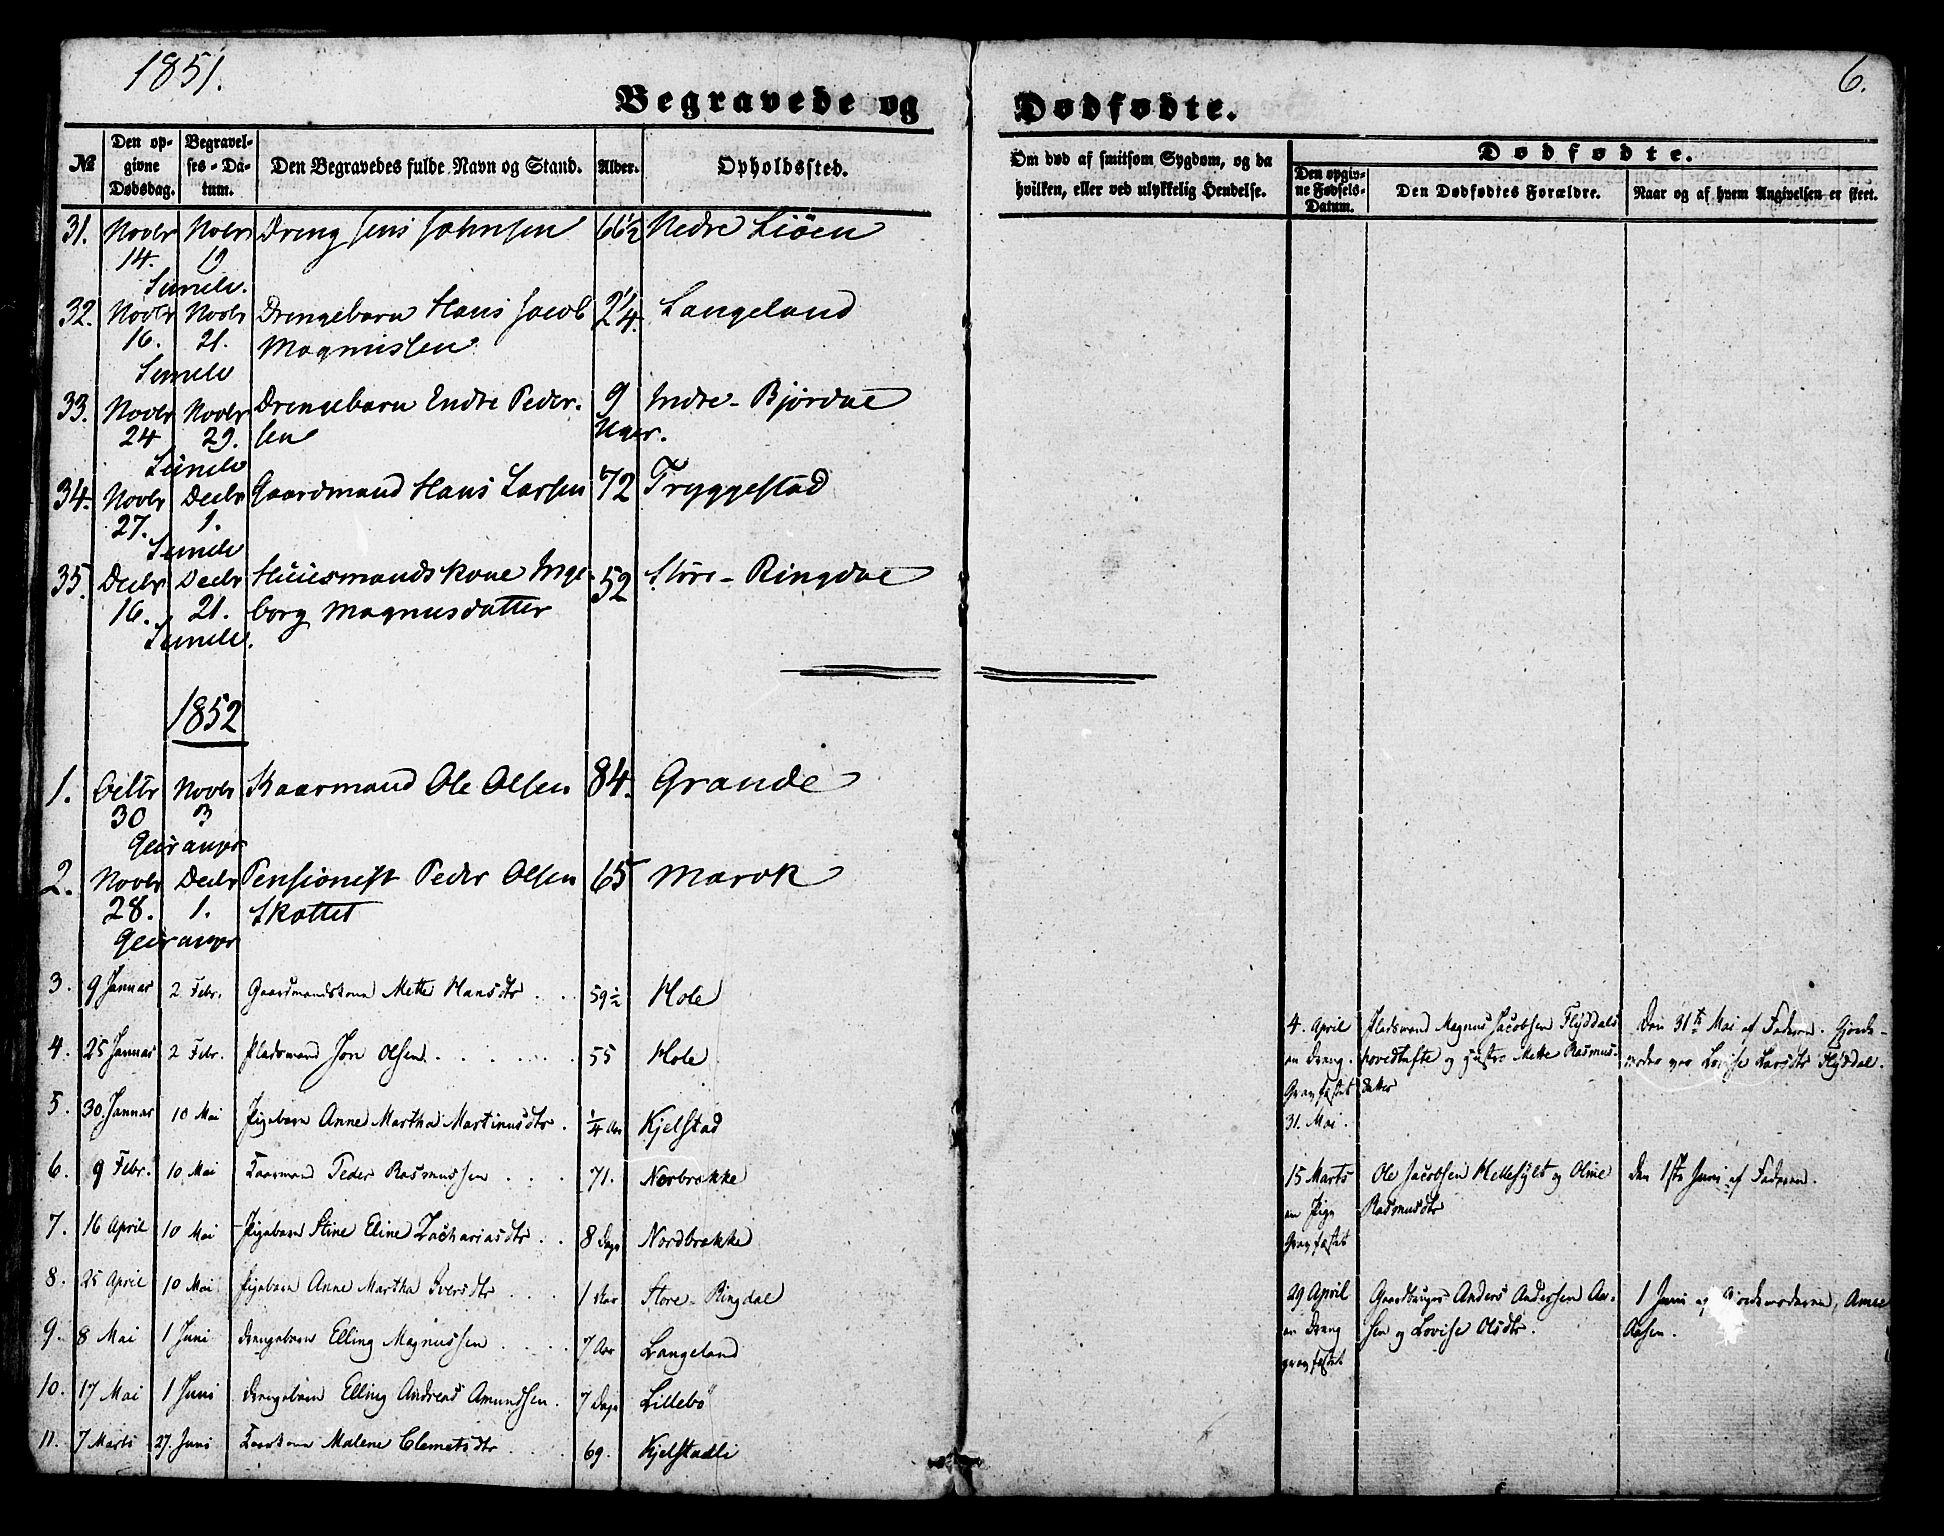 1851.
6.
Begravede og Dødfødte.
№
Den op-
givne
Dødsdag.
Begravel-
ses-Da-
tum.
Den Begravedes fulde Navn og Stand.
Alder.
Opholdssted.
Om død af smitsom Sygdom, og da
hvilken, eller ved ulykkelig Hendelse.
Dødfødte.
Den opgiv-
ne Fødsels-
Datum.
Den Dødfødtes Forældre.
Naar og af hvem Angivelsen er skeet.
31. Novbr Novbr Dreng Jens Johnsen 66½ Nedre Liøen
14. 19
Sunelv.
32. Novbr Novbr Drengebarn Hans Jacob 2¼. Langeland
16. 21. Magnussen
Sunelv
33. Novbr Novbr Drengebarn Endre Peder- 9 Indre-Bjørdal
24 29. sen Uger.
Sunelv
34. Novbr Decbr Gaardmand Hans Larsen 72 Tryggestad
27. 1.
Sunelv
35. Decbr Decbr Huusmandskone Inge- 52 Store-Ringdal
16. 21. borg Magnusdatter
Sunelv.
1852
1. Octbr Novbr Kaarmand Ole Olsen 84. Grande
30 3
Geiranger
2. Novbr Decbr Pensionist Peder Olsen 65 Marok
28. 1. Skottet
Geiranger
3. 9 Januar 2 Febr. Gaardmandskone Mette Hansdtr 59½ Hole
4. 25 Januar 2 Febr. Pladsmand Jon Olsen 55 Hole
5. 30. Januar 10 Mai Pigebarn Anne Martha Martinusdtr. ¼ Aar Kjelstad
6. 9 Febr. 10 Mai Kaarmand Peder Rasmussen 71. Norbrække
7. 16 April 10 Mai Pigebarn Stine Eline Zachariasdtr 8 Dage Nordbrække
8. 25 April 10 Mai Pigebarn Anne Martha Iversdtr 1 Aar Store-Ringdal
9. 8 Mai 1 Juni Drengebarn Elling Magnussen 7 Aar Langeland
10. 17 Mai 1 Juni Drengebarn Elling Andreas Amundsen. 7 Dage Lillebö
11. 7 Marts 27. Juni Kaarkone Malene Clemetsdtr 69. Kjelstadli
4. April Pladsmand Magnus Jacobsen Flyddals Den 31te Mai af Faderen. Gjorde-
en Dreng. hovedtufte og Hustro Mette Rasmus- moder var Lovise Larsdtr Flyddal.
Gravfæstet datter
31. Mai.
15 Marts Ole Jacobsen Hellesylt og Oline Den 1ste Juni af Faderen.
en Pige Rasmusdtr
Gravfæstet
29 April Gaardbruger Anders Andersen Aa- 1 Juni af Gjordemoderen, Anne
en Dreng sen og Lovise Olsdtr. Aasen.
gravfæstet